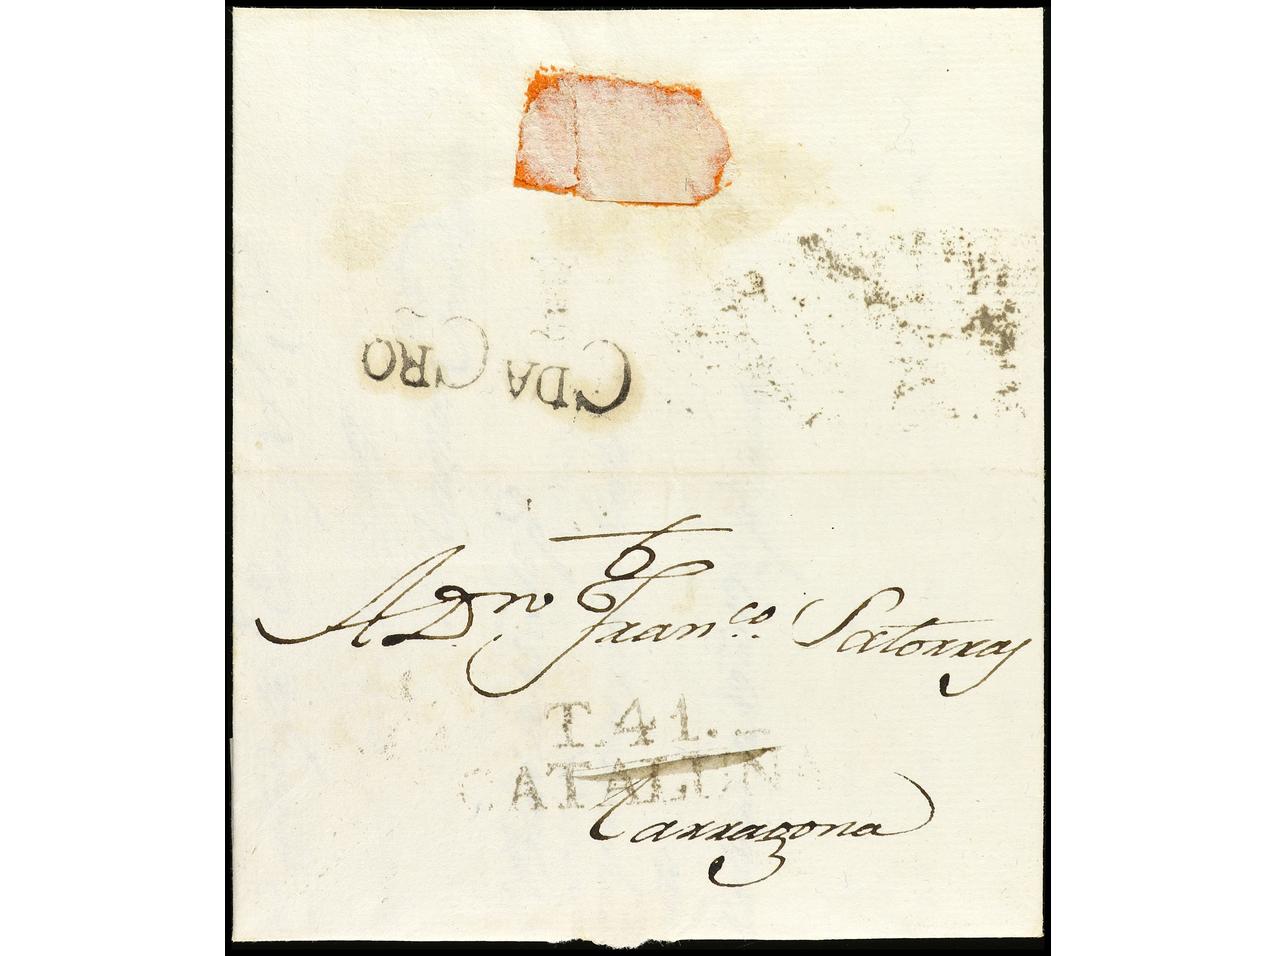 CDA GRO
A Dn Franco. Satorras
T.41.
CATALUÑA
Tarragona